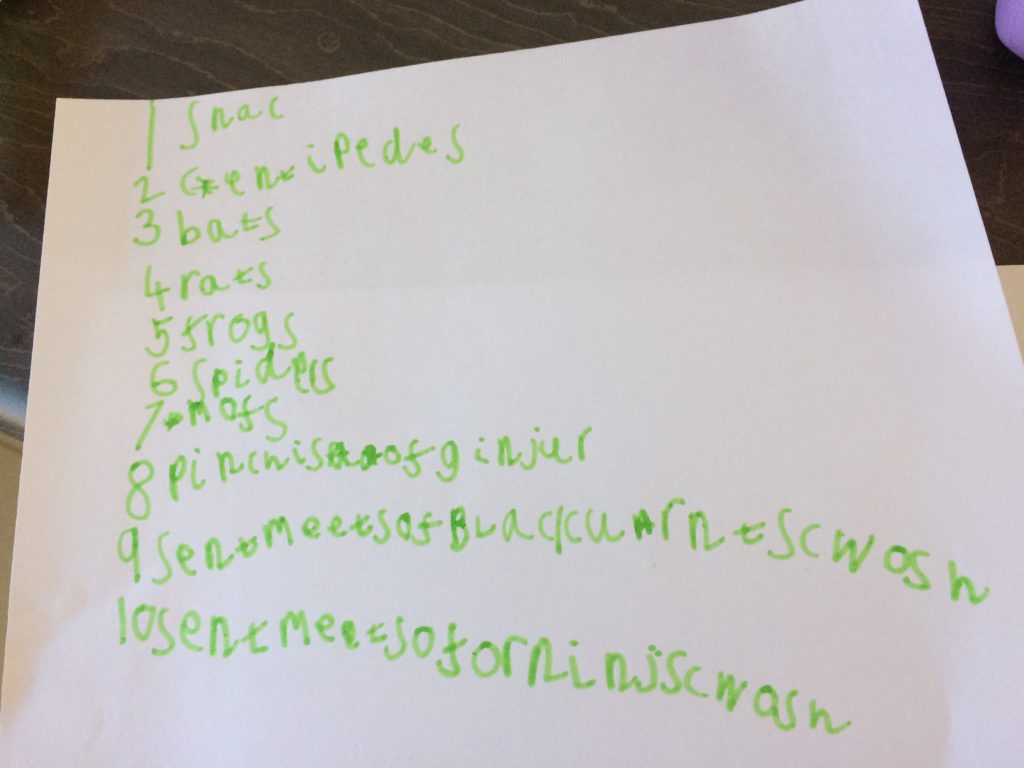 1 snac
2 centipedes
3 bats
4 rats
5 frogs
6 spiders
7 mofs
8 pinchis of ginjur
9 sentmeetsofBlackcurntscwosh
10 sentmeetsoforninjscwosh